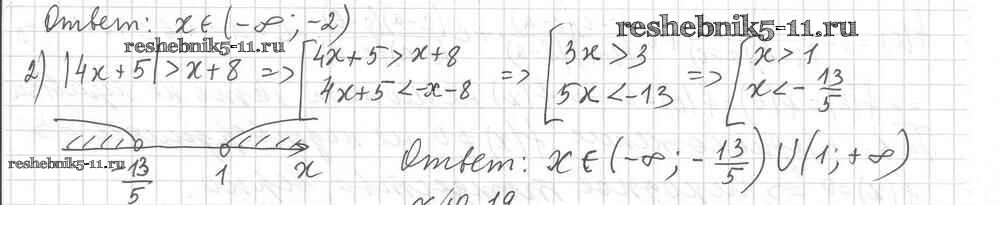 Ответ: x ∈ (-∞; -2)
reshebnik5-11.ru
reshebnik5-11.ru
2) |4x+5| > x+8 => [ 4x+5 > x+8 => [ 3x > 3 => [ x > 1
4x+5 < -x-8 5x < -13 x < -13/5
reshebnik5-11.ru
-13/5 1 x
Ответ: x ∈ (-∞; -13/5) ∪ (1; +∞)